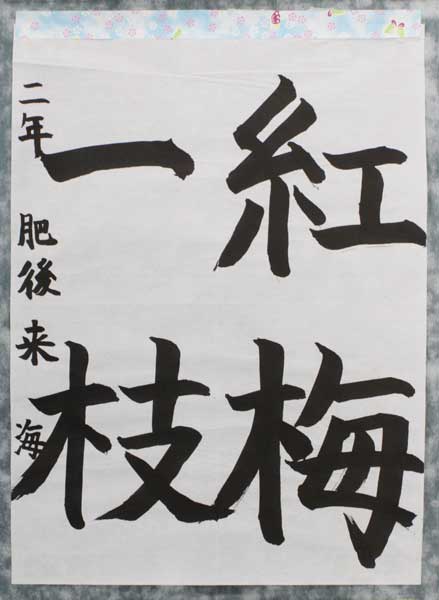 紅梅
一枝
二年 肥後来海